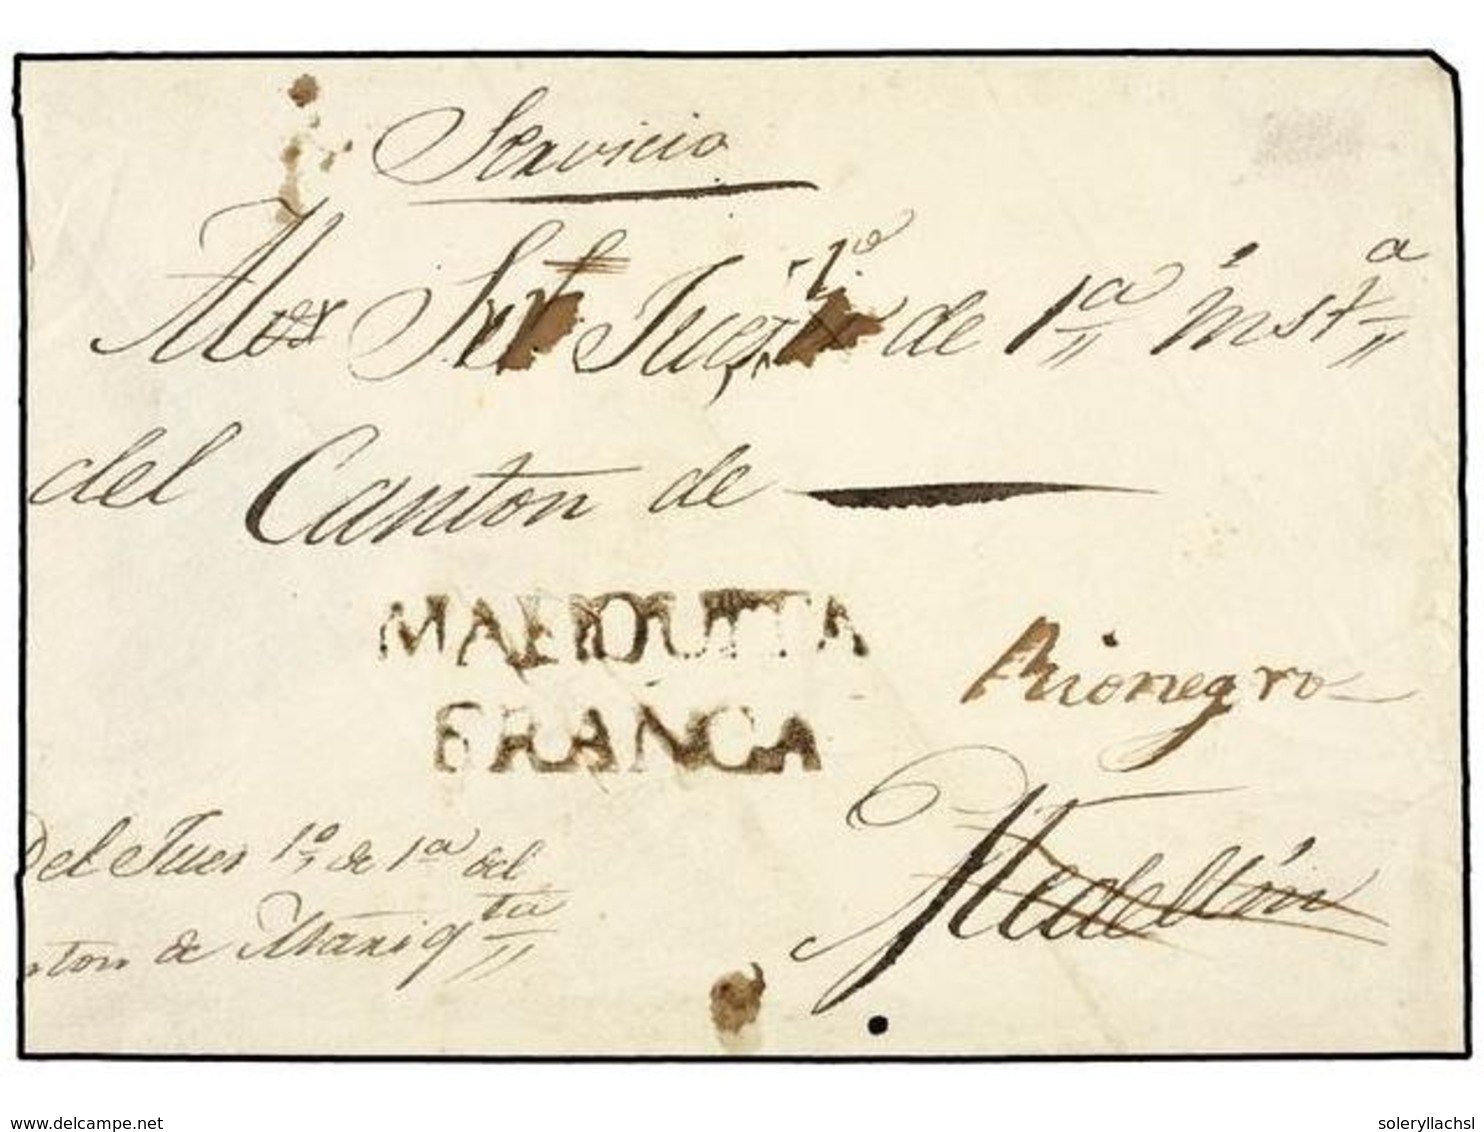 Servicio
Al Sr Juez 1º de 1ª inst.ª
del Canton de
MARIQUITA
FRANCA
Rionegro
Medellín
Del Jues 1º de 1ª del
nton de Mariq.ta
www.delcampe.net
soleryllachsl